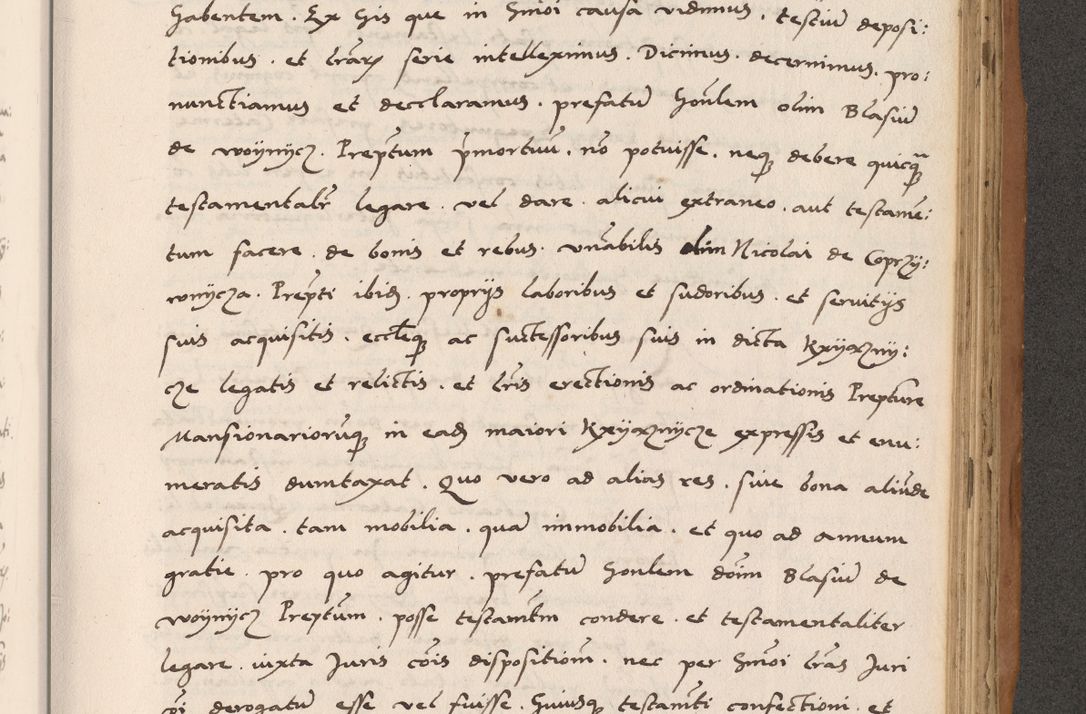 habentem . Ex his que in hmoi causa vidimus . testiu deposi:
tionibus . et lrarx serie intelleximus . Dicimus . decernimus . pro:
nunctiamus et decclaramus . prefatu honlem olim Blasiu
de woynycz . Preptum pmortuu . no potuisse . neq debere quicq
testamentalr legare . vel dare . alicui extraneo . aut testame:
tum facere . de bonis et rebus . vnabilis olim Nicolai de Coprzy:
wnycza . Prepti ibid . proprys laboribus et sudoribus . et seruitys
suis acquisitis . eccleq ac suctessoribus suis in dicta Kxyazny:
cze legatis et relictis . et lris erectionis ac ordinationis Prepture
Mansionarioruq in ead maiori Kxyaznycze expressis et enu:
meratis dumtaxat . Quo vero ad alias res . siue bona aliude
acquisita . tam mobilia . qua immobilia . et quo ad annum
gratie . pro quo agitur . prefatu honlem doim Blasiu de
woynycz Preptum . posse testamtm condere . et testamentaliter
legare . iuxta Juris cois dispositiom . nec per hmoi lras Juri
coi derogatu esse vel fuisse . huiusq testamti confectioni . et